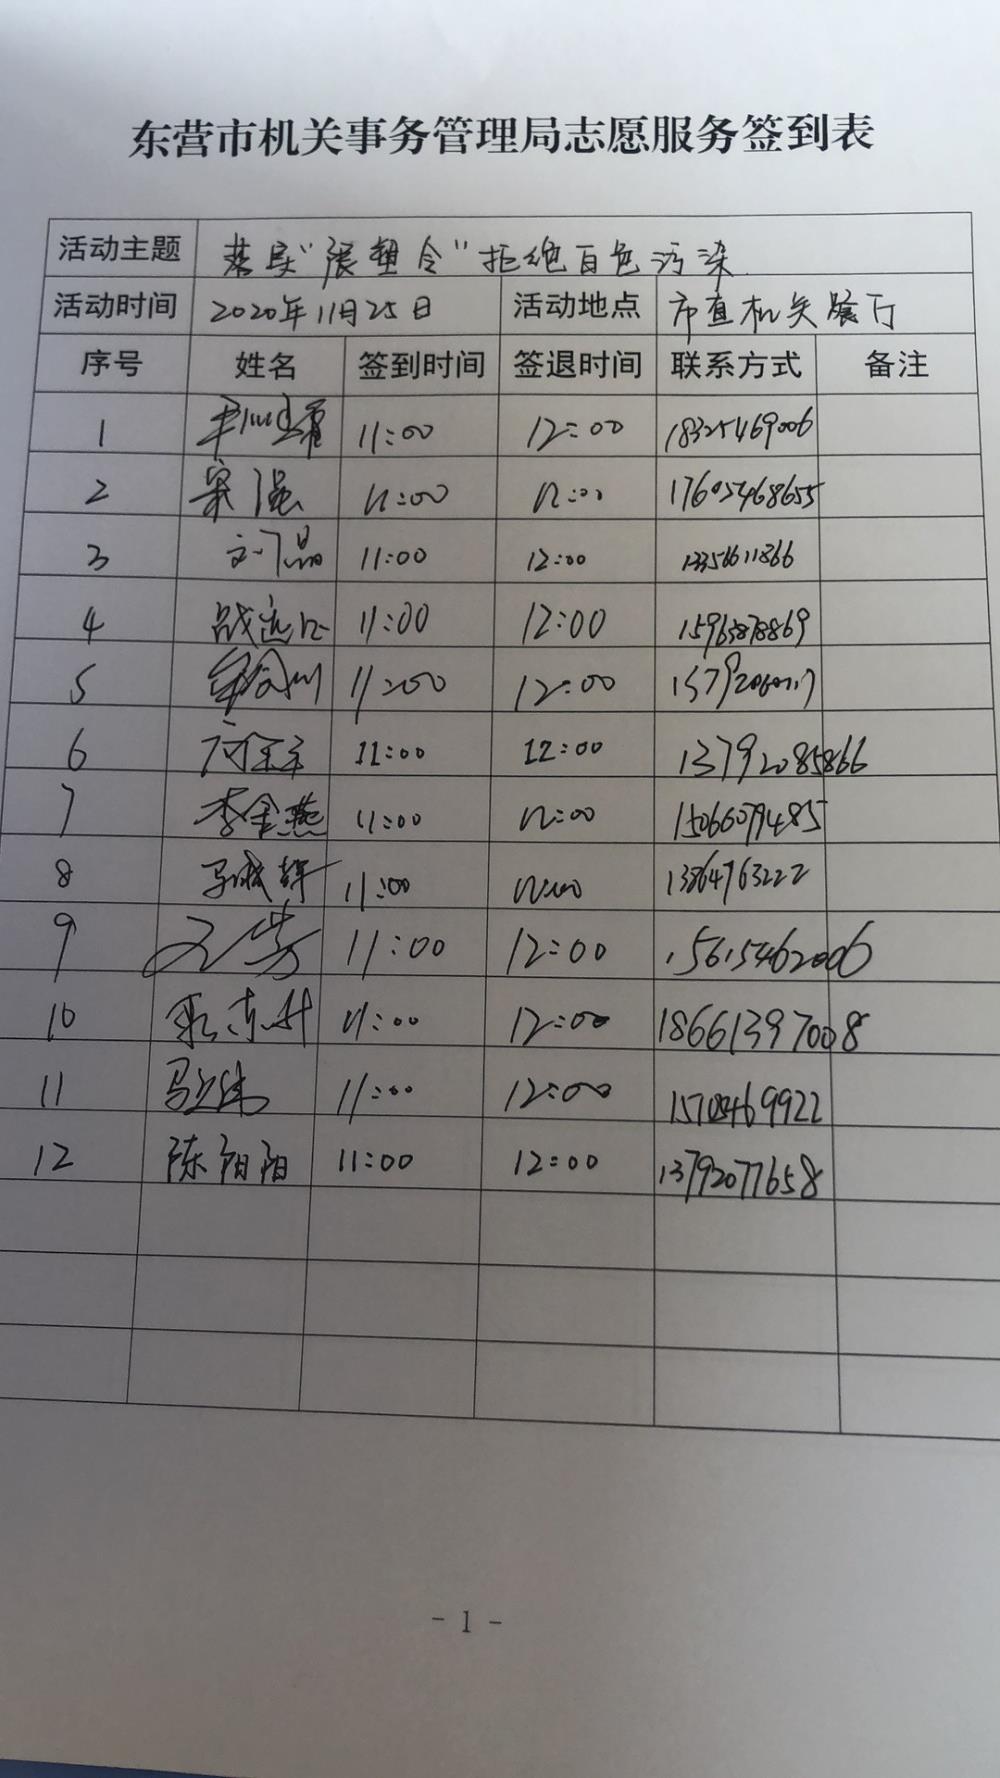 东营市机关事务管理局志愿服务签到表
活动主题 落实"限塑令"拒绝白色污染
活动时间 2020年11月25日 活动地点 市直机关餐厅
序号 姓名 签到时间 签退时间 联系方式 备注
1 11:00 12:00 18325469006
2 宋强 11:00 12:00 17605468655
3 刘晶 11:00 12:00 13356611866
4 11:00 12:00 15963878869
5 11:00 12:00
6 11:00 12:00 13792085866
7 李金燕 11:00 12:00 15066079485
8 11:00 12:00 13864763222
9 11:00 12:00 15615462006
10 11:00 12:00 18661397008
11 11:00 12:00
12 陈阳阳 11:00 12:00 13792077658
- 1 -